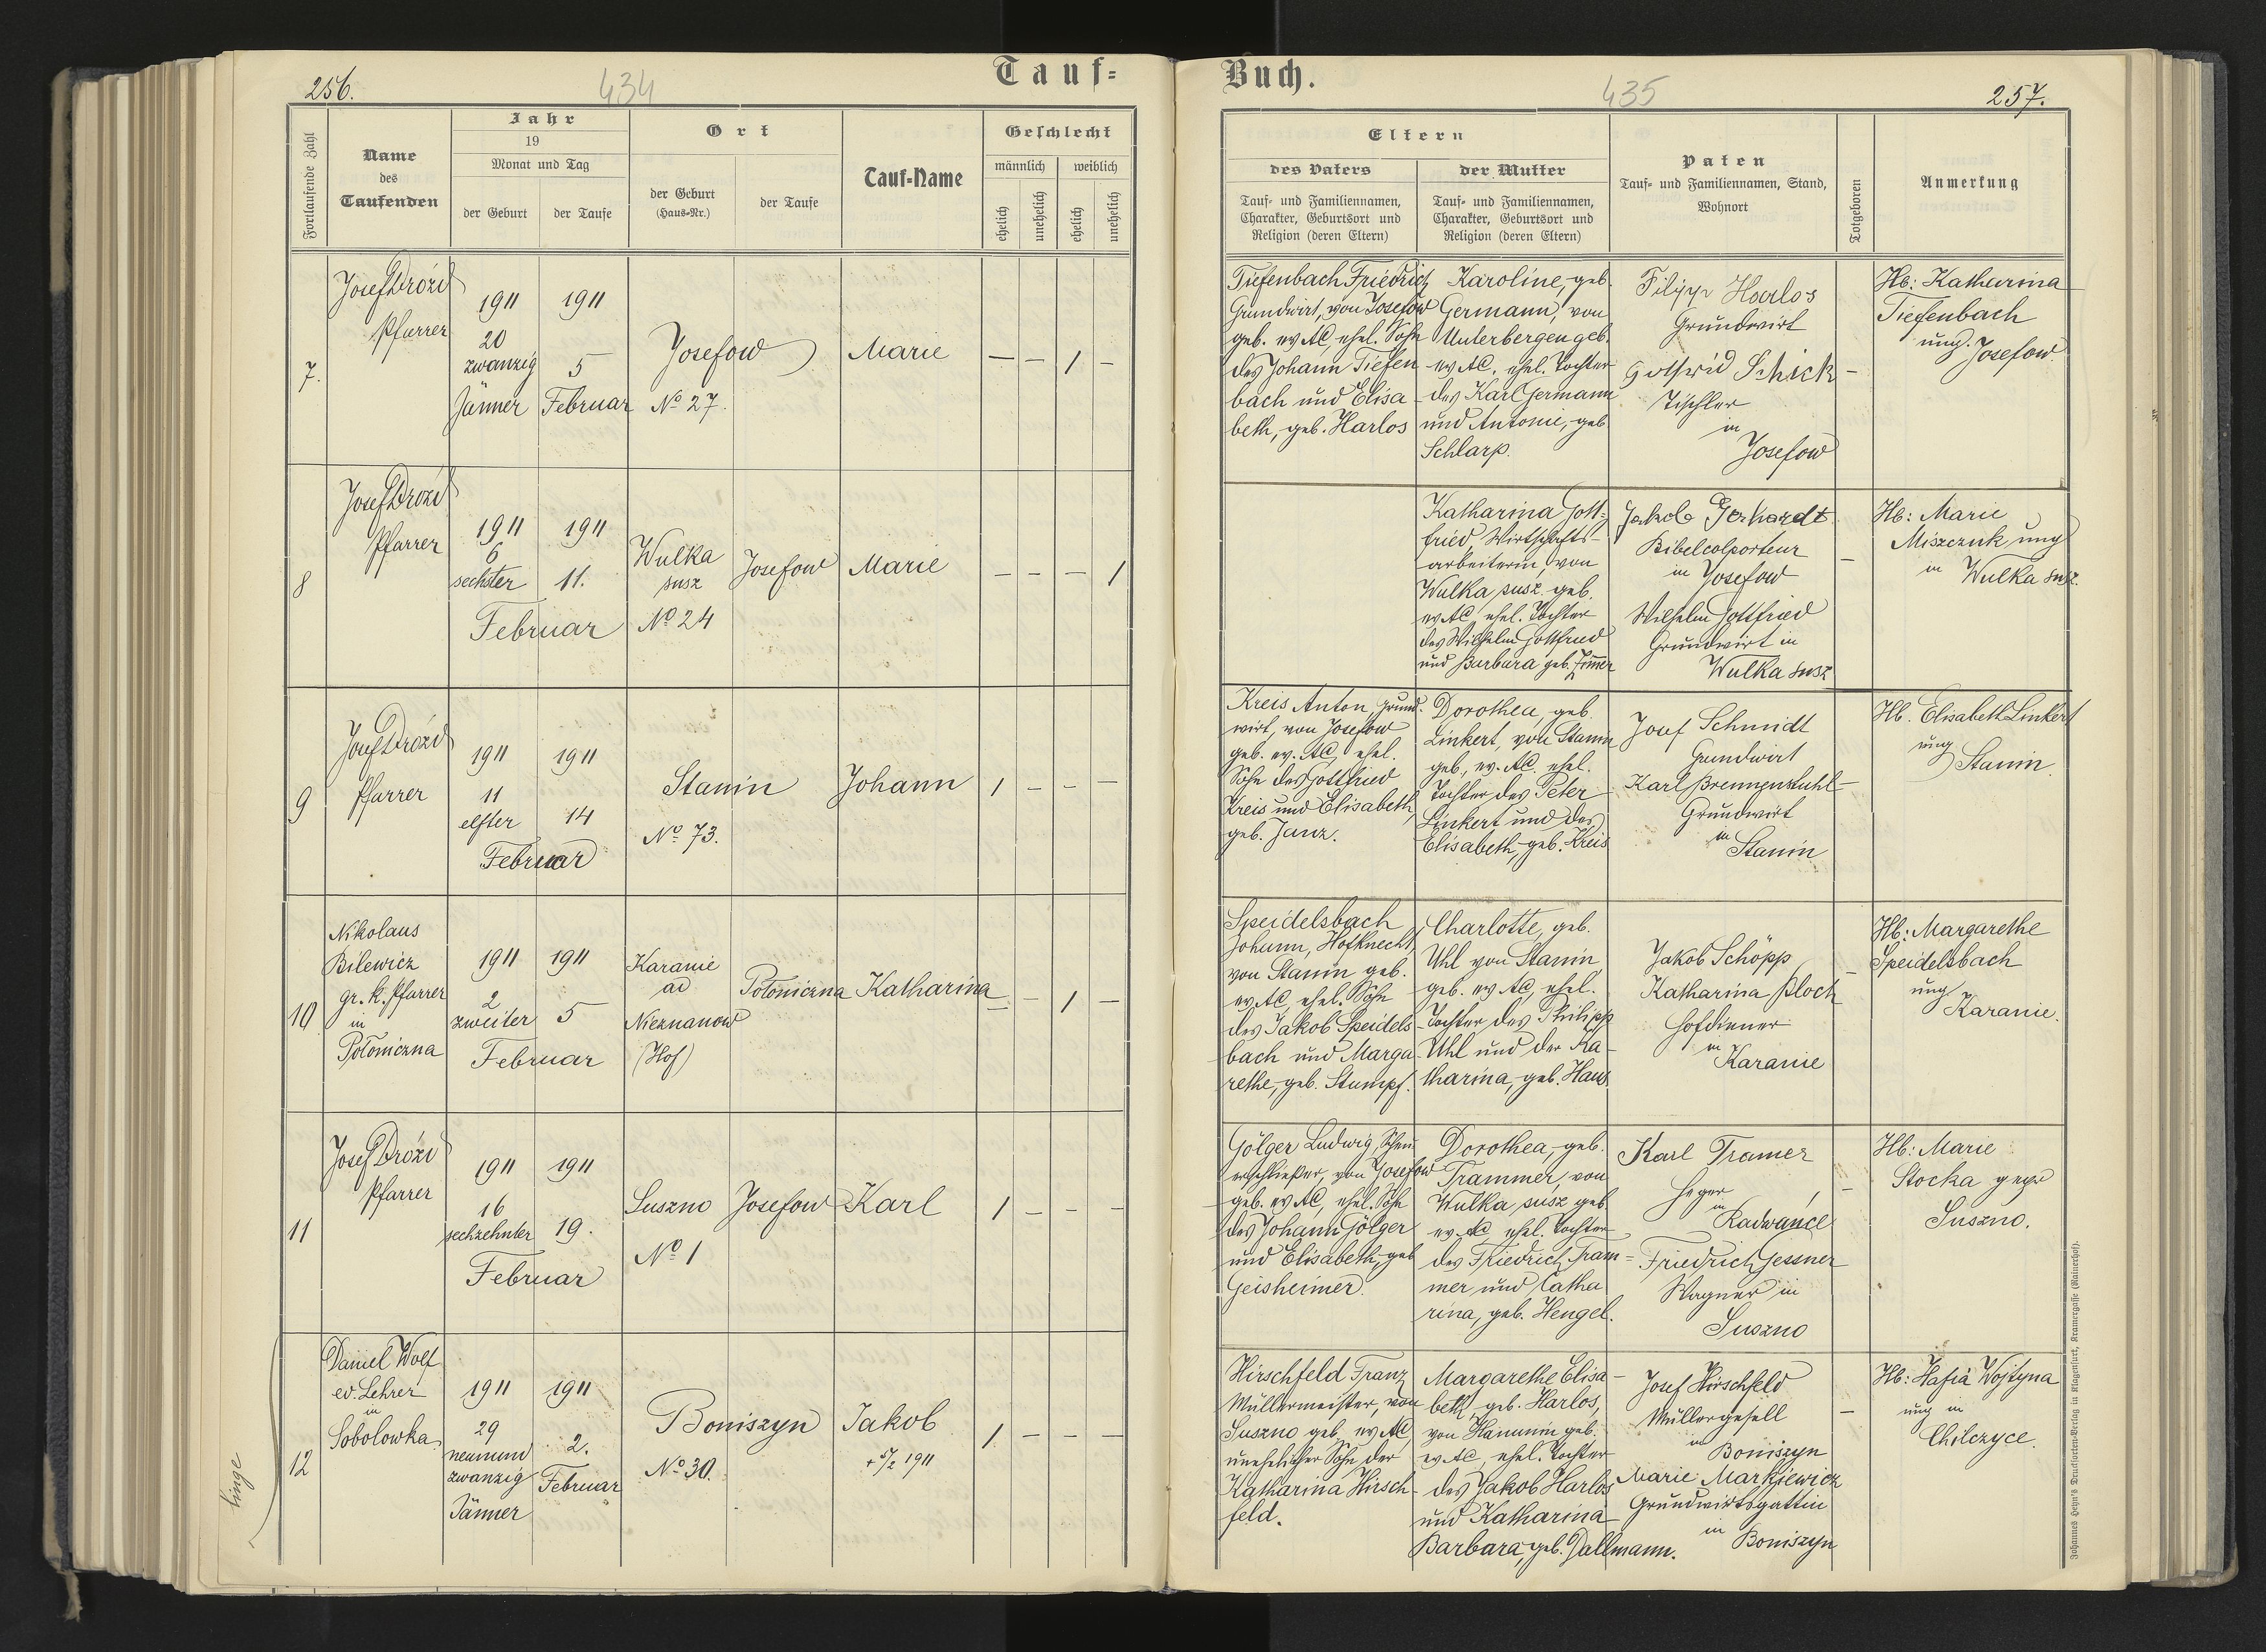 256.
434
Tauf=
Fortlaufende Zahl
Name
des
Taufenden
Jahr
19
Monat und Tag
der Geburt
der Taufe
Ort
der Geburt
(Haus-Nr.)
der Taufe
Tauf-Name
Geschlecht
männlich
weiblich
ehelich
unehelich
ehelich
unehelich
7.
Josef Drozd
Pfarrer
1911
20
zwanzig
Jänner
1911
5
Februar
Josefow
No 27.
Marie
— — 1 —
8
Josef Drozd
Pfarrer
1911
6
sechster
1911
11.
Februar
Wulka
susz
No 24
Josefow
Marie
— — — 1
9
Josef Drozd
Pfarrer
1911
11
elfter
1911
14
Februar
Stanin
No 73.
Johann
1 — — —
10
Nikolaus
Bilewicz
gr. k. Pfarrer
in
Połoniczna
1911
2
zweiter
1911
5
Februar
Karanie
ad
Nieznanow
(Hof)
Połoniczna
Katharina
— — 1 —
11
Josef Drozd
Pfarrer
1911
16
sechzehnter
1911
19.
Februar
Suszno
No 1
Josefow
Karl
1 — — —
12
Daniel Wolf
ev. Lehrer
in
Sobolowka
1911
29
neunund
zwanzig
Jänner
1911
2.
Februar
Boniszyn
No 30.
Jakob
1911
1 — — —
Buch.
435
257.
Eltern
des Vaters
Tauf- und Familiennamen,
Charakter, Geburtsort und
Religion (deren Eltern)
der Mutter
Tauf- und Familiennamen,
Charakter, Geburtsort und
Religion (deren Eltern)
Paten
Tauf- und Familiennamen, Stand,
Wohnort
Totgeboren
Anmerkung
Tiefenbach Friedrich
Grundwirt, von Josefow
geb. ev AC, ehel. Sohn
des Johann Tiefen
bach und Elisa
beth, geb. Harlos
Karoline, geb.
Germann, von
Unterbergen geb.
ev AC. ehel. Tochter
des Karl Germann
und Antonie, geb
Schlarp.
Filipp Harlos
Grundwirt
Gottfrid Schick
Tischler
in
Josefow
—
Hb: Katharina
Tiefenbach
ung. Josefow.
Katharina Gott=
fried, Wirtschafts-
arbeiterin, von
Wulka susz. geb.
ev AC, ehel. Tochter
des Wilhelm Gottfried
und Barbara geb. Zimmer
Jakob Gerhardt
Bibelcolporteur
in Josefow
Wilhelm Gottfried
Grundwirt in
Wulka susz
—
Hb: Marie
Miszczuk ung
in Wulka susz.
Kreis Anton, Grund-
wirt, von Josefow
geb. ev. AC, ehel.
Sohn des Gottfried
Kreis und Elisabeth,
geb. Janz.
Dorothea, geb.
Linkert, von Stanin
geb, ev. AC. ehel.
Tochter des Peter
Linkert und der
Elisabeth, geb. Kreis
Josef Schmidt
Grundwirt
Karl Brennenstuhl
Grundwirt
in
Stanin
—
Hb. Elisabeth Linkert
ung
Stanin.
Speidelsbach
Johann, Hofknecht,
von Stanin geb.
ev AC, ehel. Sohn
des Jakob Speidels
bach und Marga
rethe, geb. Stumpf.
Charlotte, geb.
Uhl von Stanin,
geb. ev AC, ehel.
Tochter des Philipp
Uhl und der Ka-
tharina, geb. Haus
Jakob Schöpp
Katharina Ploch
Hofdiener
in
Karanie
—
Hb: Margarethe
Speidelsbach
ung
Karanie.
Gölger Ludwig,
von Josefow
geb. ev AC, ehel. Sohn
des Johann Gölger
und Elisabeth, geb
Geisheimer.
Dorothea, geb.
Trammer, von
Wulka susz geb.
ev AC, ehel. Tochter
des Friedrich Tram=
mer und Catha
rina, geb. Hengel.
Karl Tramer
Heger
in
Radwance
Friedrich Gessner
Wagner in
Suszno
—
Hb: Marie
Stocka gepr
Suszno.
Hirschfeld Franz
Müllermeister, von
Suszno geb, ev AC,
unehelicher Sohn der
Katharina Hirsch-
feld.
Margarethe Elisa-
beth, geb. Harlos,
von Hanunin geb.
ev AC, ehel. Tochter
des Jakob Harlos
und Katharina
Barbara, geb. Dallmann.
Josef Hirschfeld
Müllergesell
in
Boniszyn
Marie Markiewicz
Grundwirtsgattin
in
Boniszyn
—
Hb: Hafia Wojtyna
ung in
Chilczyce.
Johannes Heyn's Drucksorten-Verlag in Klagenfurt, Kramergasse (Rainerhof).